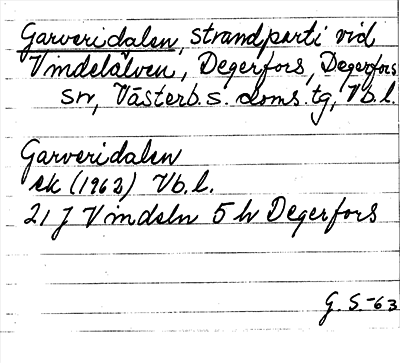 Garveridalen, strandparti vid
Vindelälven, Degerfors, Degerfors
sn, Västerb. s. doms. tg, Vb. l.
Garveridalen
ek (1962) Vb. l.
21 J Vindeln 5 h Degerfors
G. S. -63